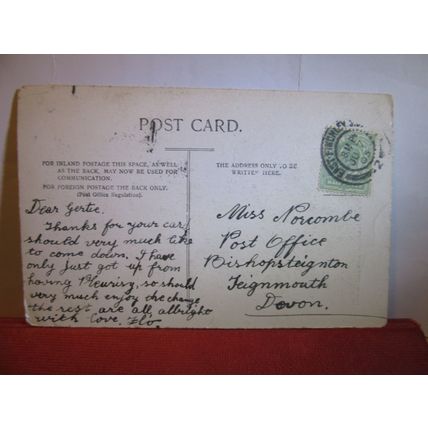 POST CARD.
FOR INLAND POSTAGE THIS SPACE, AS WELL
AS THE BACK, MAY NOW BE USED FOR
COMMUNICATION.
FOR FOREIGN POSTAGE THE BACK ONLY.
(Post Office Regulation).
THE ADDRESS ONLY TO BE
WRITTEN HERE.
Dear Gertie.
Thanks for your card
should very much like
to come down. I have
only just got up from
having Pleurisy, so should
very much enjoy the change
the rest are all allright
with Love. Flo.
Miss Norcombe
Post Office
Bishopsteignton
Teignmouth
Devon.